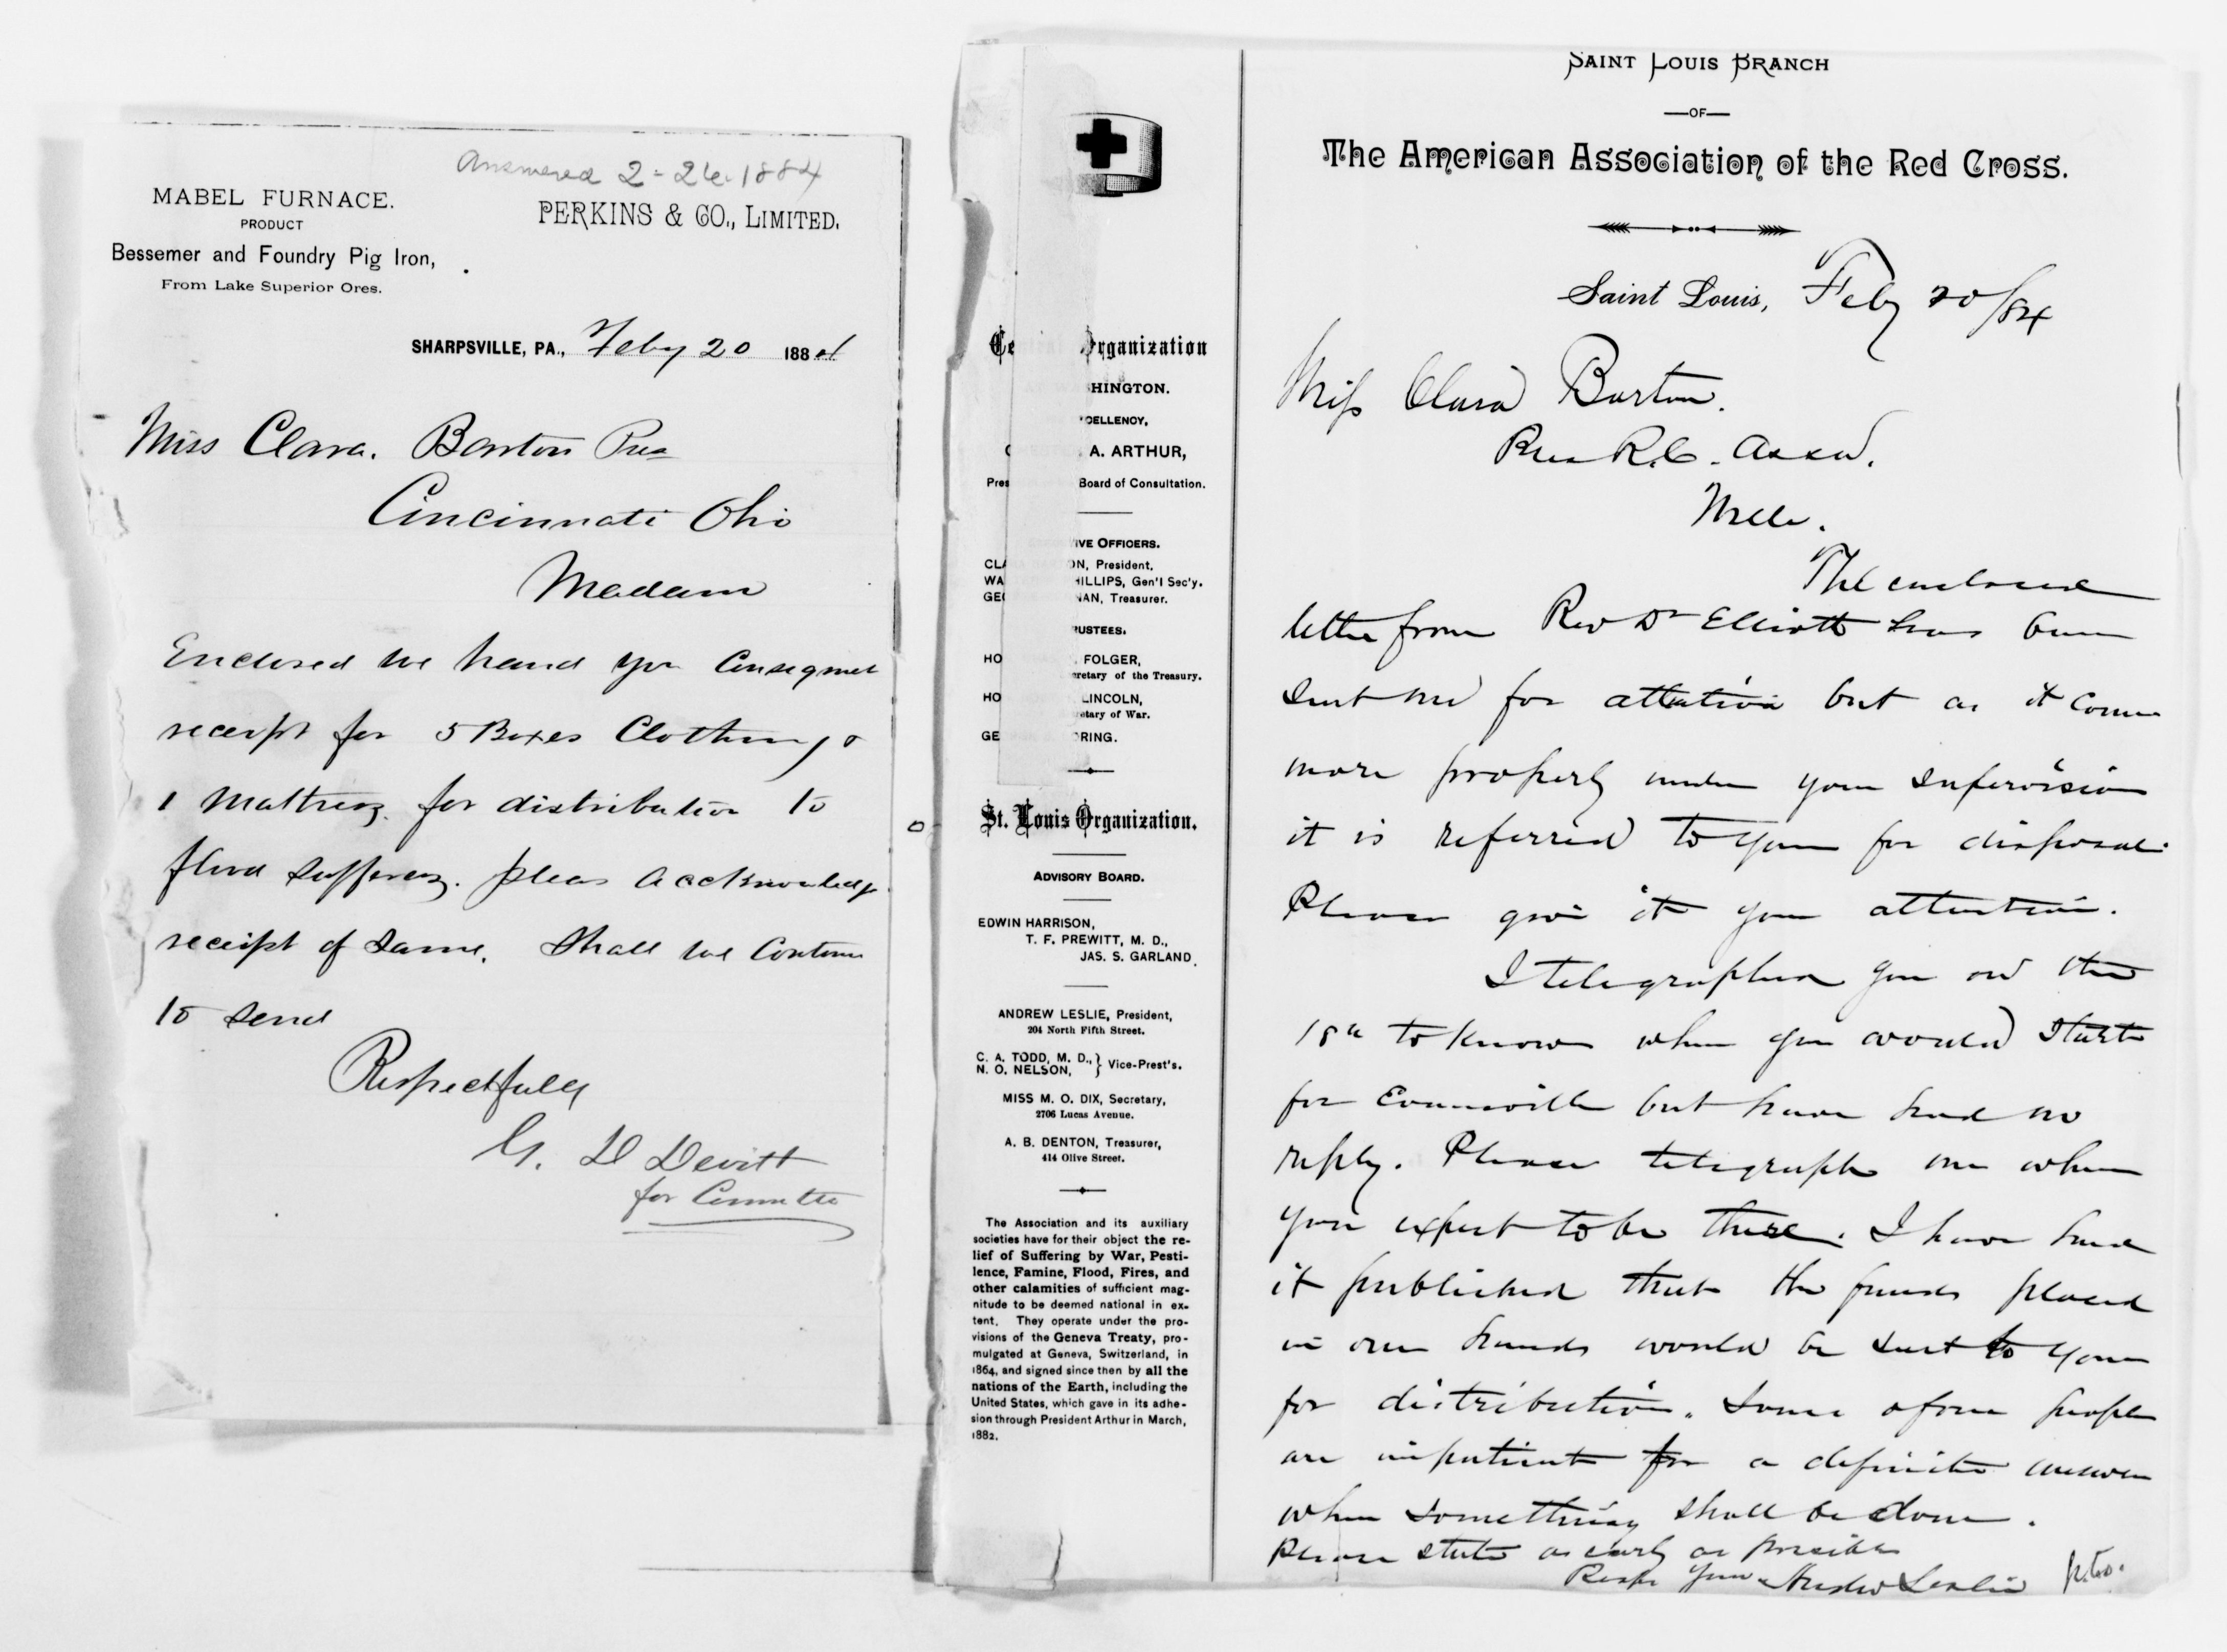 Answered 2-26-1884
MABEL FURNACE.
PRODUCT
Bessemer and Foundry Pig Iron,
From Lake Superior Ores.
PERKINS & CO., LIMITED.
SHARPSVILLE, PA., Feby 20 1884
Miss Clara. Barton Pres
Cincinnati Ohio
Madam
Enclosed we hand you
receipt for 5 Boxes Clothing &
1 Mattress. for distribution to
flood sufferers. pleas
receipt of Same. Shall we
to send
Respectfully
G. D Devitt
for Committee
Ce Organization
HINGTON.
CELLENCY,
C A. ARTHUR,
Pres Board of Consultation.
IVE OFFICERS.
CLA ON, President,
WA HILLIPS, Gen'l Sec'y.
GEO NAN, Treasurer.
RUSTEES.
HO FOLGER,
cretary of the Treasury.
HO LINCOLN,
etary of War.
GE ORING.
St. Louis Organization.
ADVISORY BOARD.
EDWIN HARRISON,
T. F. PREWITT, M. D.,
JAS. S. GARLAND.
ANDREW LESLIE, President,
204 North Fifth Street.
C. A. TODD, M. D.,
N. O. NELSON, } Vice-Prest's.
MISS M. O. DIX, Secretary,
2706 Lucas Avenue.
A. B. DENTON, Treasurer,
414 Olive Street.
The Association and its auxiliary
societies have for their object the re-
lief of Suffering by War, Pesti-
lence, Famine, Flood, Fires, and
other calamities of sufficient mag-
nitude to be deemed national in ex-
tent. They operate under the pro-
visions of the Geneva Treaty, pro-
mulgated at Geneva, Switzerland, in
1864, and signed since then by all the
nations of the Earth, including the
United States, which gave in its adhe-
sion through President Arthur in March,
1882.
SAINT LOUIS BRANCH
—OF—
The American Association of the Red Cross.
Saint Louis, Feby 20/84
Miss Clara Barton.
Pres R. C. Assn.
The enclosed
letter from Rev Dr Elliott has been
sent me for attention but as it comes
more properly under your supervision
it is referred to you for disposal.
Please give it your attention.
I telegraphed you on the
18th to know when you would start
for Evansville but have had no
reply. Please telegraph me when
you expect to be there. I have had
it published that the funds placed
in our hands would be sent to you
for distribution. Some of our people
are impatient for a definite answer
when something shall be done.
Please state as early as possible
Respy Yours Andrew Leslie